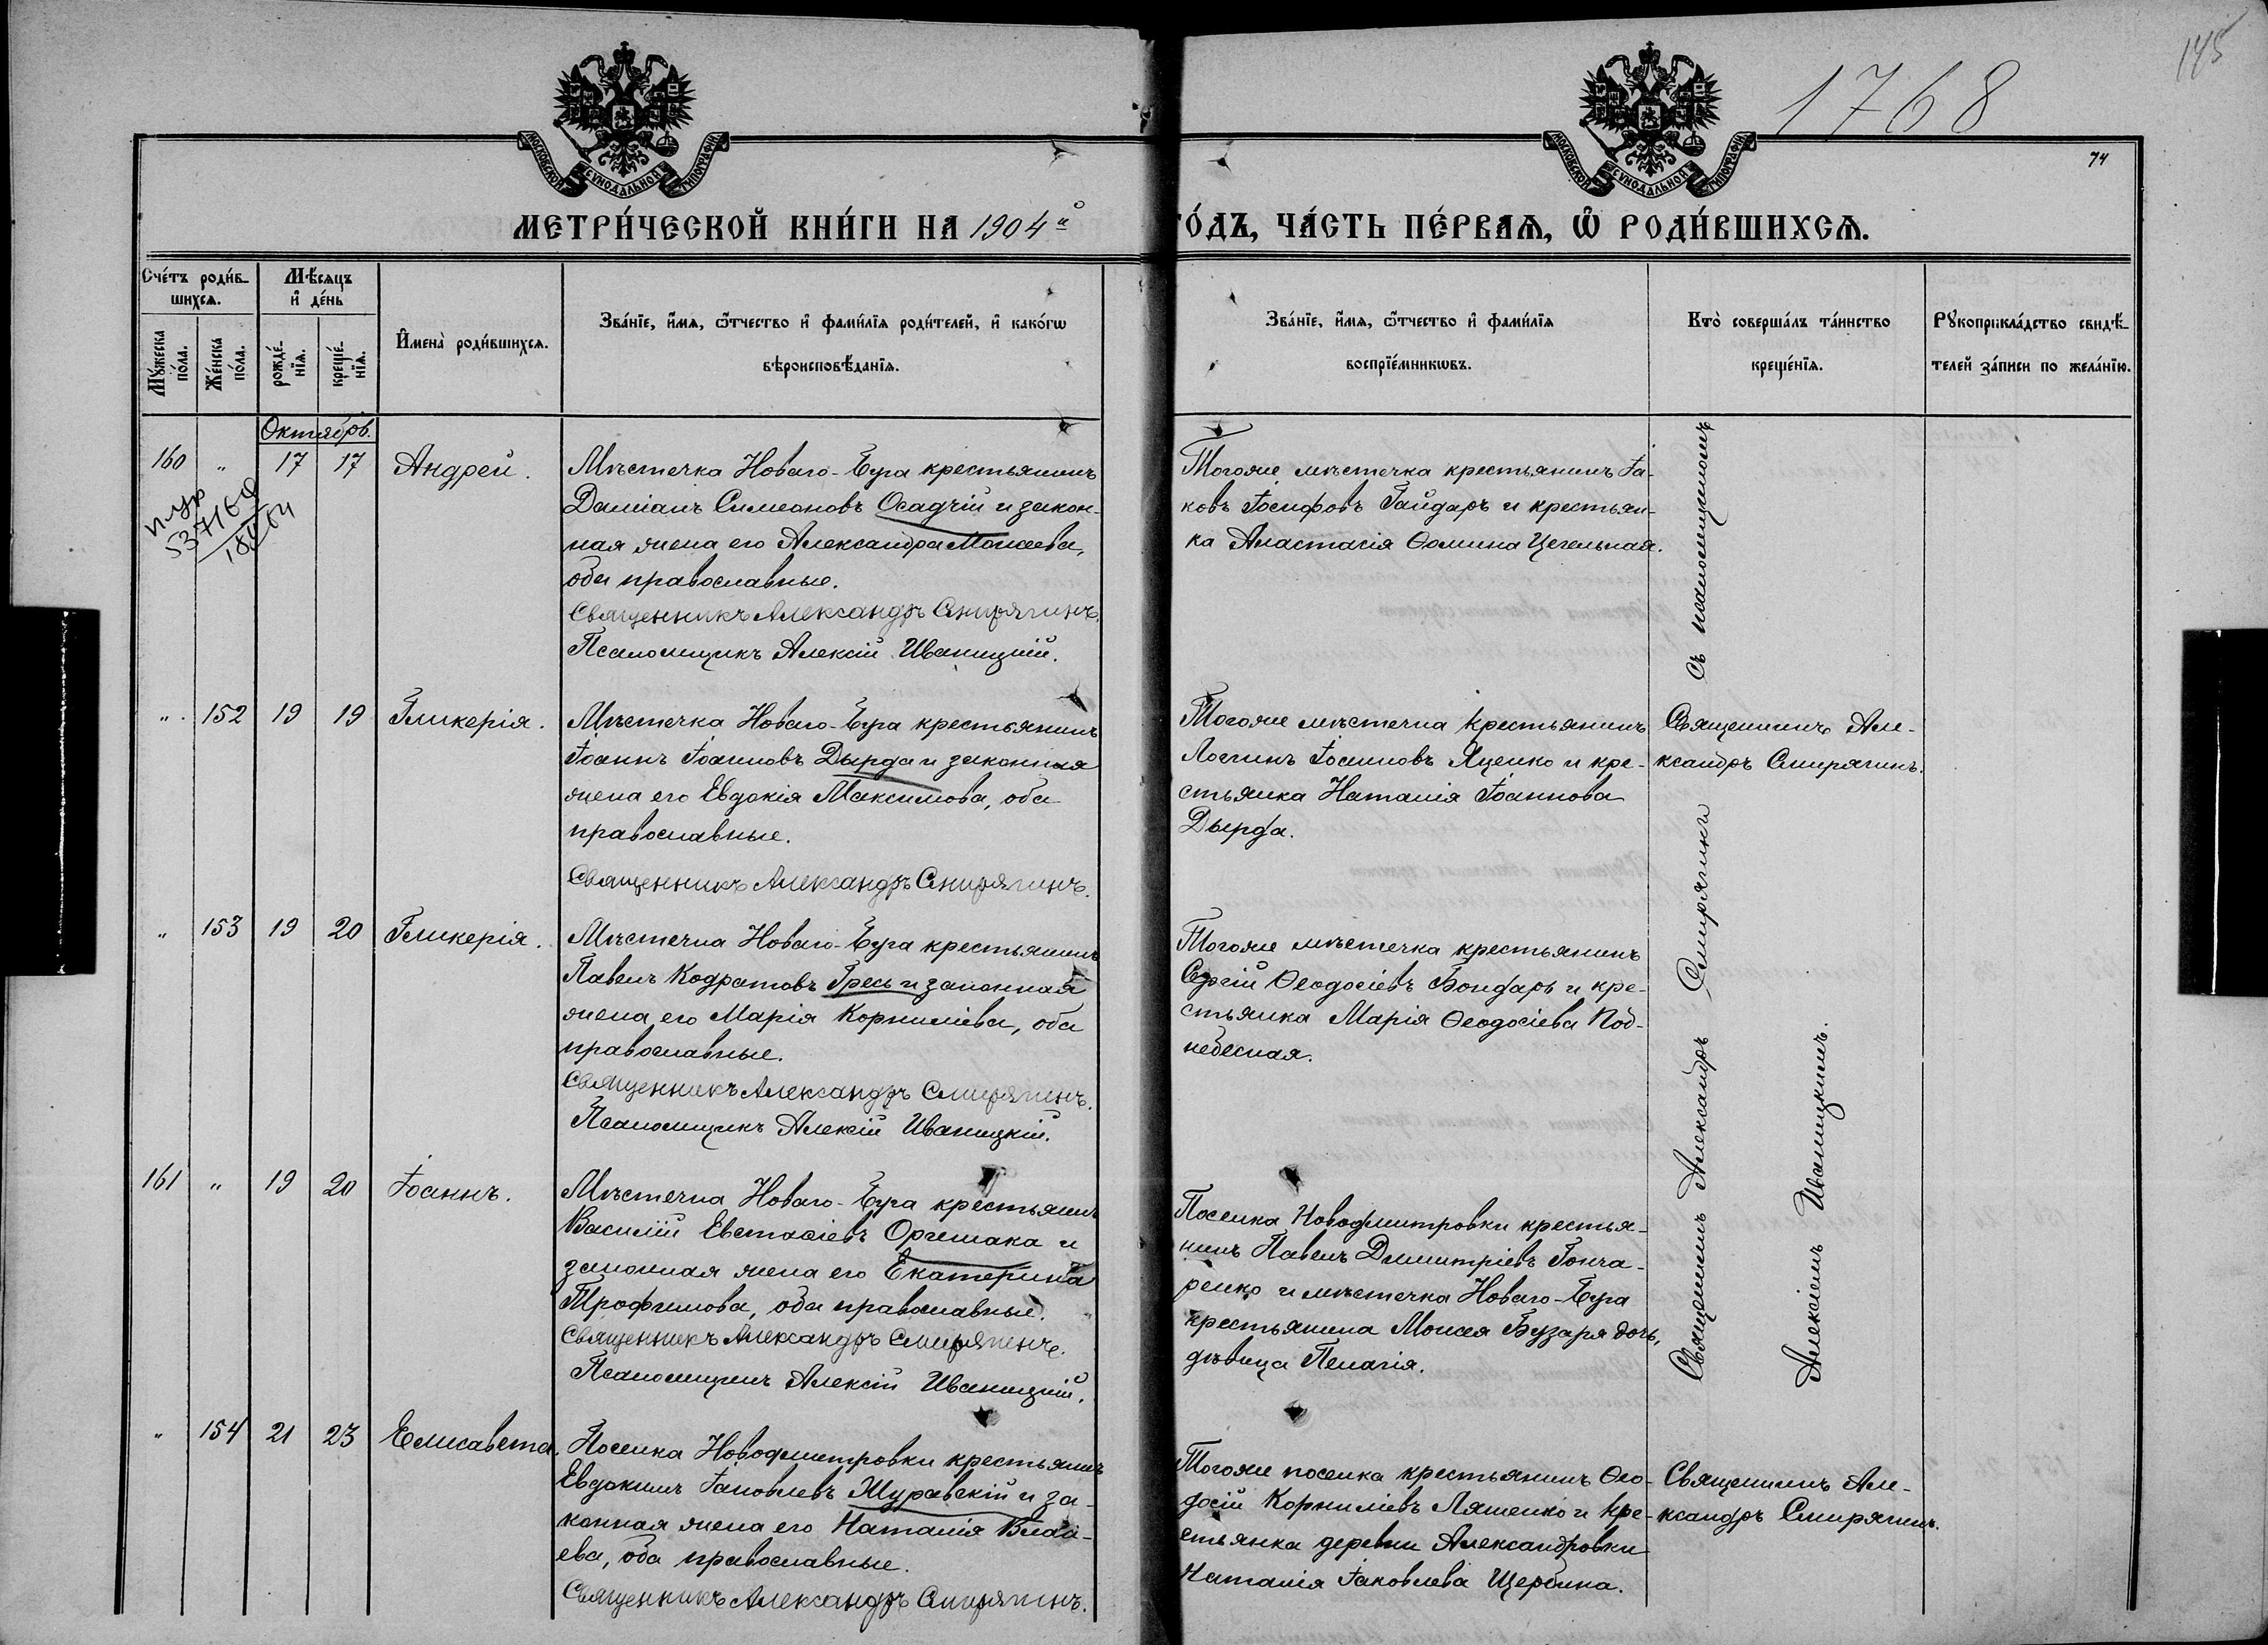 145
1768
74
МОСКОВСКОЙ СУНОДАЛЬНОЙ ТИПОГРАФІИ
МОСКОВСКОЙ СУНОДАЛЬНОЙ ТИПОГРАФІИ
МЕТРИ́ЧЕСКОЙ КНИ́ГИ НА 1904й
ГО́ДЪ, ЧА́СТЬ ПЕ́РВАѦ, Ѡ РОДИ́ВШИХСѦ.
Сче́тъ роди́в-
шихсѧ.
Мꙋ́жеска
по́ла.
Же́нска
по́ла.
Мѣ́сѧцъ
и҆ де́нь
рожде́-
нїѧ.
креще́-
нїѧ.
И҆мена̀ роди́вшихсѧ.
Зва́нїе, и҆́мѧ, ѻ҆́тчество и҆ фами́лїѧ роди́телей, и҆ како́гѡ
вѣроисповѣ́данїѧ.
Зва́нїе, и҆́мѧ, ѻ҆́тчество и҆ фами́лїѧ
воспрїе́мникѡвъ.
Кто̀ соверша́лъ та́инство
креще́нїѧ.
Рꙋкоприкла́дство свидѣ́-
телей за́писи по жела́нїю.
Октябрь.
160 " 17 17 Андрей.
Мѣстечка Новаго-Буга крестьянинъ
Даміанъ Симеоновъ Осадчій и закон-
ная жена его Александра Моисеева,
оба православные.
Священникъ Александръ Смирягинъ.
Псаломщикъ Алексій Иваницкій.
Тогоже мѣстечка крестьянинъ Іа-
ковъ Іосифовъ Гайдаръ и крестьян-
ка Анастасія Ѳомина Цегельная.
" 152 19 19 Гликерія.
Мѣстечка Новаго-Буга крестьянинъ
Іоаннъ Іоанновъ Дырда и законная
жена его Евдокія Максимова, оба
православные.
Священникъ Александръ Смирягинъ.
Тогоже мѣстечка крестьянинъ
Логгинъ Іосиповъ Яценко и кре-
стьянка Наталія Іоаннова
Дырда.
Священникъ Але-
ксандръ Смирягинъ.
" 153 19 20 Гликерія.
Мѣстечка Новаго-Буга крестьянинъ
Павелъ Кодратовъ Гресь и законная
жена его Марія Корниліева, оба
православные.
Священникъ Александръ Смирягинъ.
Псаломщикъ Алексій Иваницкій.
Тогоже мѣстечка крестьянинъ
Сергій Ѳеодосіевъ Бондарь и кре-
стьянка Марія Ѳеодосіева Под-
небесная.
161 " 19 20 Іоаннъ.
Мѣстечка Новаго-Буга крестьянинъ
Василій Евстаѳіевъ Оргишака и
законная жена его Екатерина
Трофимова, оба православные.
Священникъ Александръ Смирягинъ.
Псаломщикъ Алексій Иваницкій.
Поселка Новодмитровки крестья-
нинъ Павелъ Димитріевъ Гонча-
ренко и мѣстечка Новаго-Буга
крестьянина Моисея Бузаря дочь,
дѣвица Пелагія.
Священникъ Александръ Смирягинъ
съ псаломщикомъ
Алексіемъ Иваницкимъ.
" 154 21 23 Елисавета.
Поселка Новодмитровки крестьянинъ
Евдокимъ Іаковлевъ Журавскій и за-
конная жена его Наталія Власі-
ева, оба православные.
Священникъ Александръ Смирягинъ.
Тогоже поселка крестьянинъ Ѳео-
досій Корниліевъ Ляшенко и кре-
стьянка деревни Александровки
Наталія Іаковлева Щербина.
Священникъ Але-
ксандръ Смирягинъ.